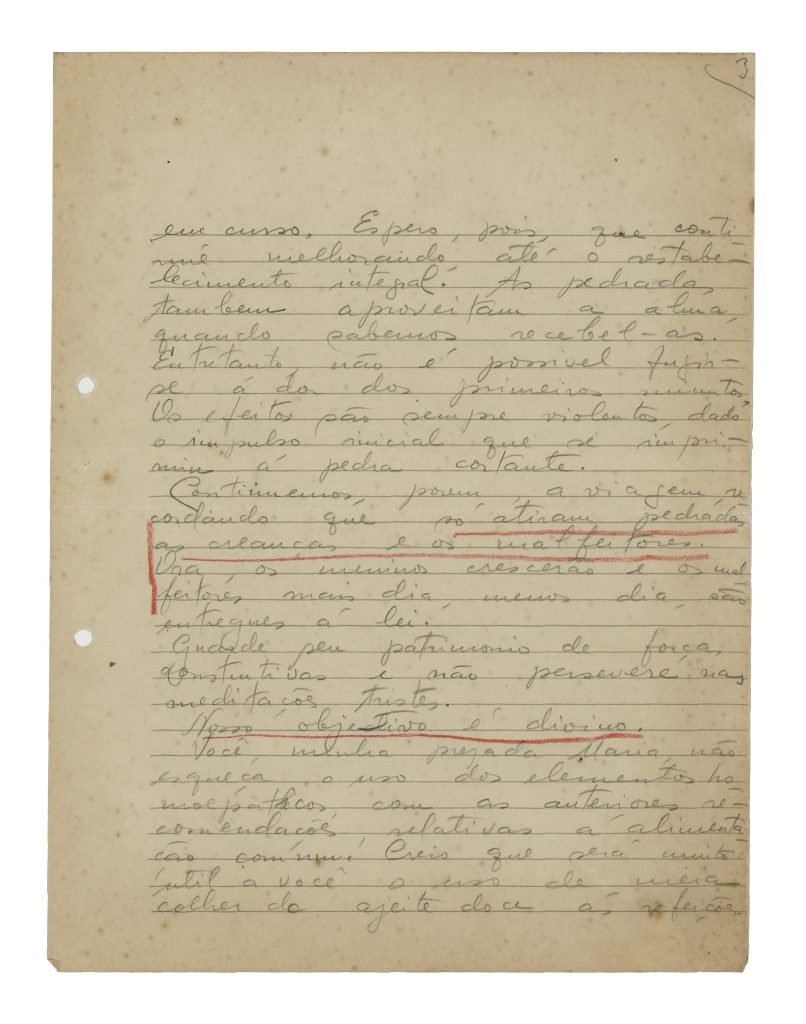 3
em curso. Espero, pois, que conti-
nuê melhorando até o restabe-
lecimento integral. As pedradas
tambem aproveitam a alma,
quando sabemos recebel-as.
Entretanto, não é possivel fugir-
se á dor dos primeiros minutos.
Os efeitos são sempre violentos, dado
o impulso inicial que se impri-
miu á pedra cortante.
Continuemos, porem, a viagem re
cordando que só atiram pedradas
as creanças e os malfeitores.
Ora, os meninos crescerão e os mal
feitores mais dia, menos dia, são
entregues á lei.
Guarde seu patrimonio de forças
construtivas e não persevere nas
meditações tristes.
Nosso objectivo é divino.
Você, minha prezada Maria, não
esqueça o uso dos elementos ho-
moepathicos, com as anteriores re-
comendações, relativas á alimenta-
ção comum. Creio que será muito
útil a você o uso de meia
colher do azeite doce ás refeições